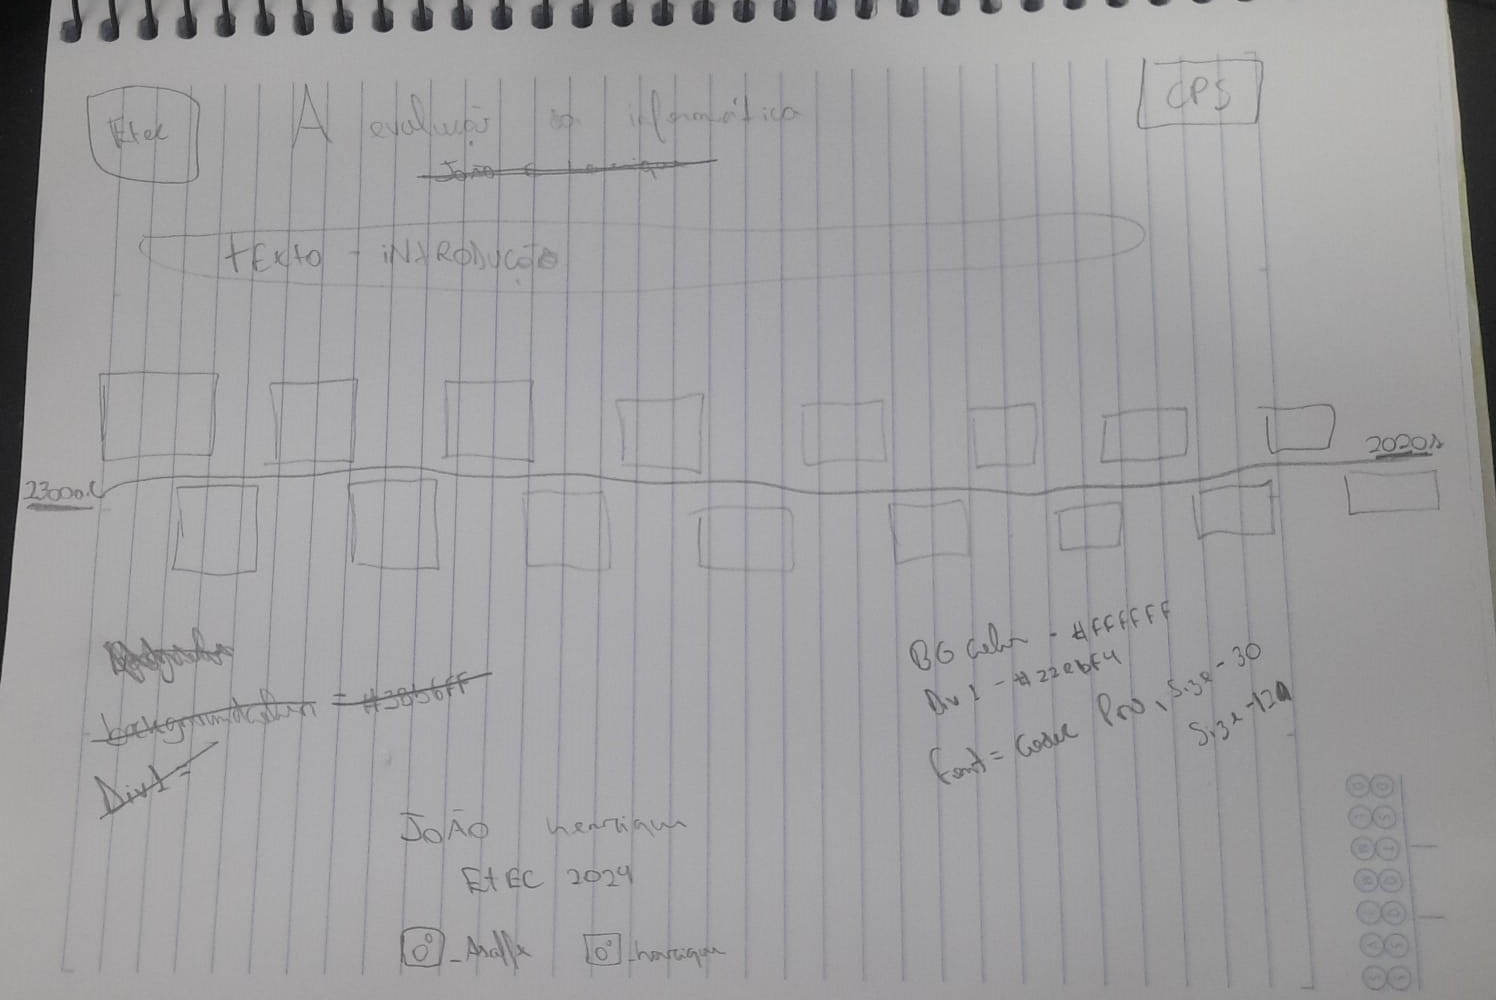 Etec
A evolução da informática
CPS
João e henrique
tExto - iNtRODUÇÃO
2300a.C
2020s
backgroundcolor = #38b6ff
Div1 =
BG color - #ffffff
Div 1 - #22ebf4
Font = Codec Pro, Size - 30
Size - 12
JOÃO henrique
EtEC 2024
_henrique